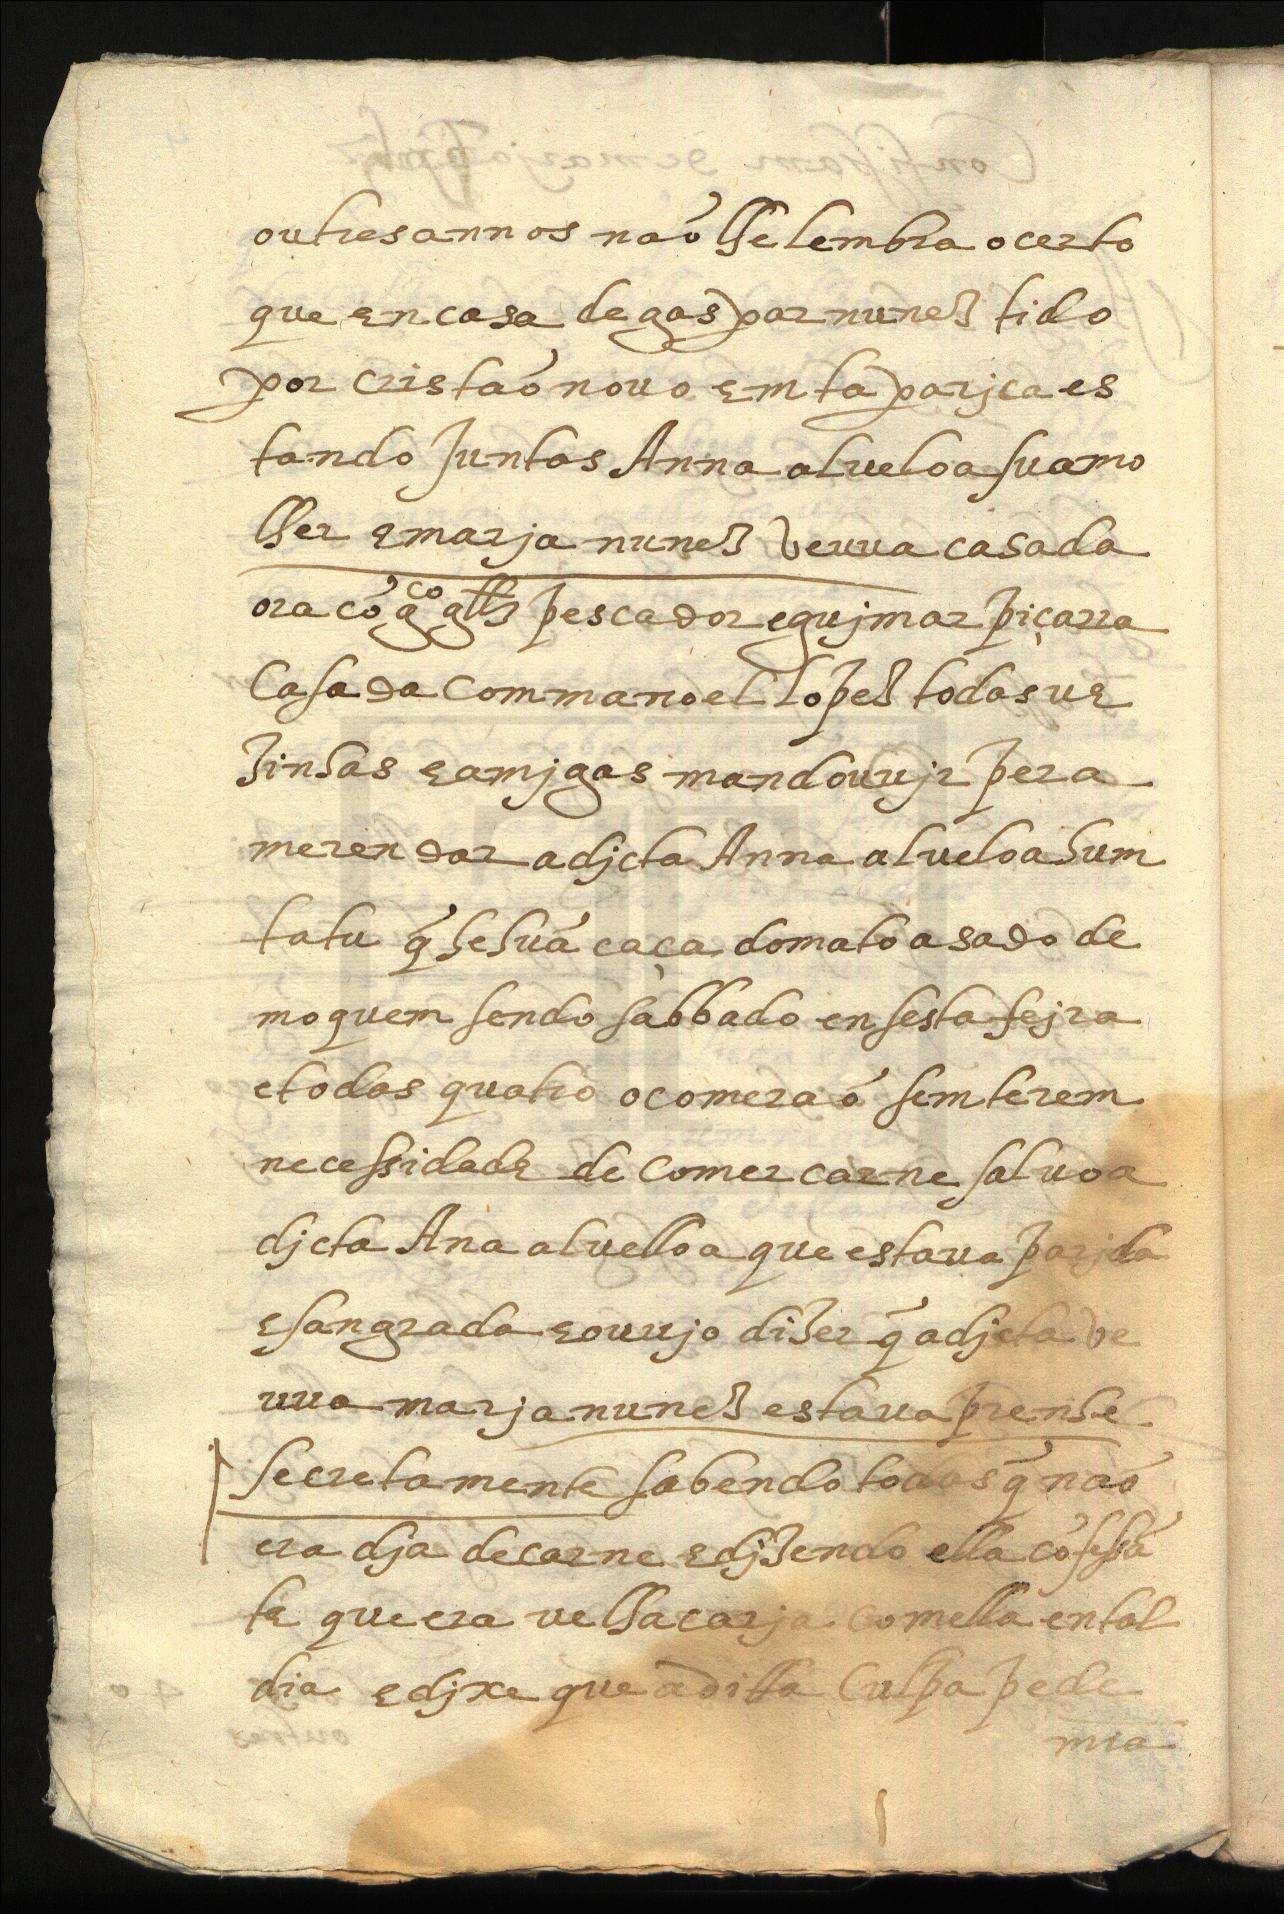 ou tres annos naõ lhe lembra o certo
que en casa de gaspar nunez tido
por cristaõ nouo em taparjca es
tando Juntas Anna alueloa sua mo
lher e marja nunez veuua casada
ora cõ g.co glz pescador e gujmar piçarra
Casada Com manoel lopez todas ue
zinhas e amjgas mandou vjr pera
merendar a djcta Anna alueloa hum
tatu q̃ he huã caça do mato asado de
moquem sendo sabbado en sesta fejra
e todas quatro o comeraõ sem terem
necessidade de Comer carne saluo a
djcta Ana aluelloa que estaua parjda
e sangrada e ouujo dizer q̃ a djcta ve
uua marja nunez estaua prenhe
secretamente sabendo todas q̃ naõ
era dja de carne e djzendo ella cõfessã
te que era uelhacarja Comella en tal
dia e djxe que a ditta Culpa pede
mia